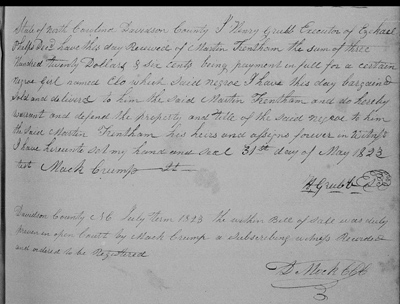 State of North Carolina Davidson County I Henry Grubb Executor of
Phelps Decd have this day Received of Martin Frentham the sum of three
Hundred twenty Dollars & six cents being payment in full for a certain
negroe girl named Clo which said negroe I have this day bargained
sold and delivered to him the said Martin Frentham and do hereby
warant and defend the property and title of the said negroe to him
the said Martin Frentham his heirs and assigns forever in Witness
I have hereunto set my hand and seal 31st day of May 1823
test Mack Crump
H Grubb
Davidson County N C July term 1823 the within Bill of Sale was duly
proven in open Court by Mack Crump a subscribing witness Recorded
and ordered to be Registered
D Mock